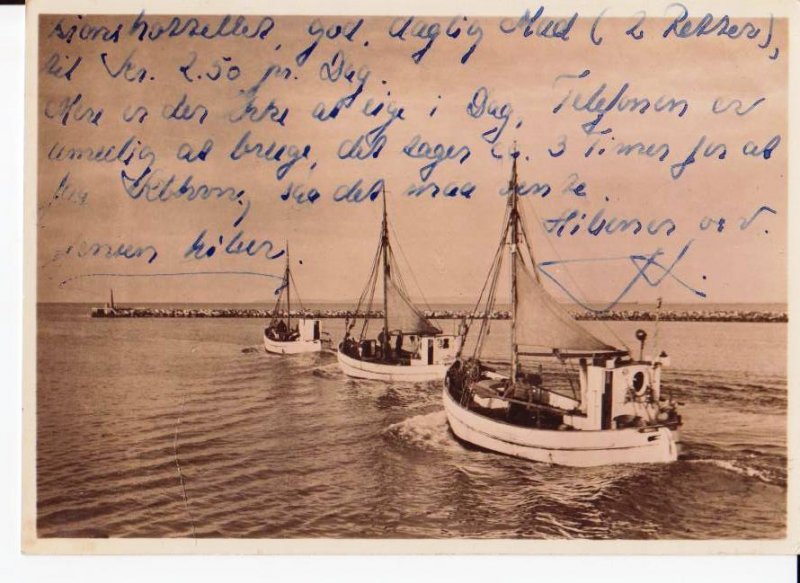 sionshotellet, god, daglig Mad (2 Retter),
til Kr. 2.50 pr. Dag.
Mere er der ikke at sige i Dag, Telefonen er
umulig at bruge, det tager ca. 3 Timer for at
faa Kbhvn, saa det maa vente.
Hilsener er v.